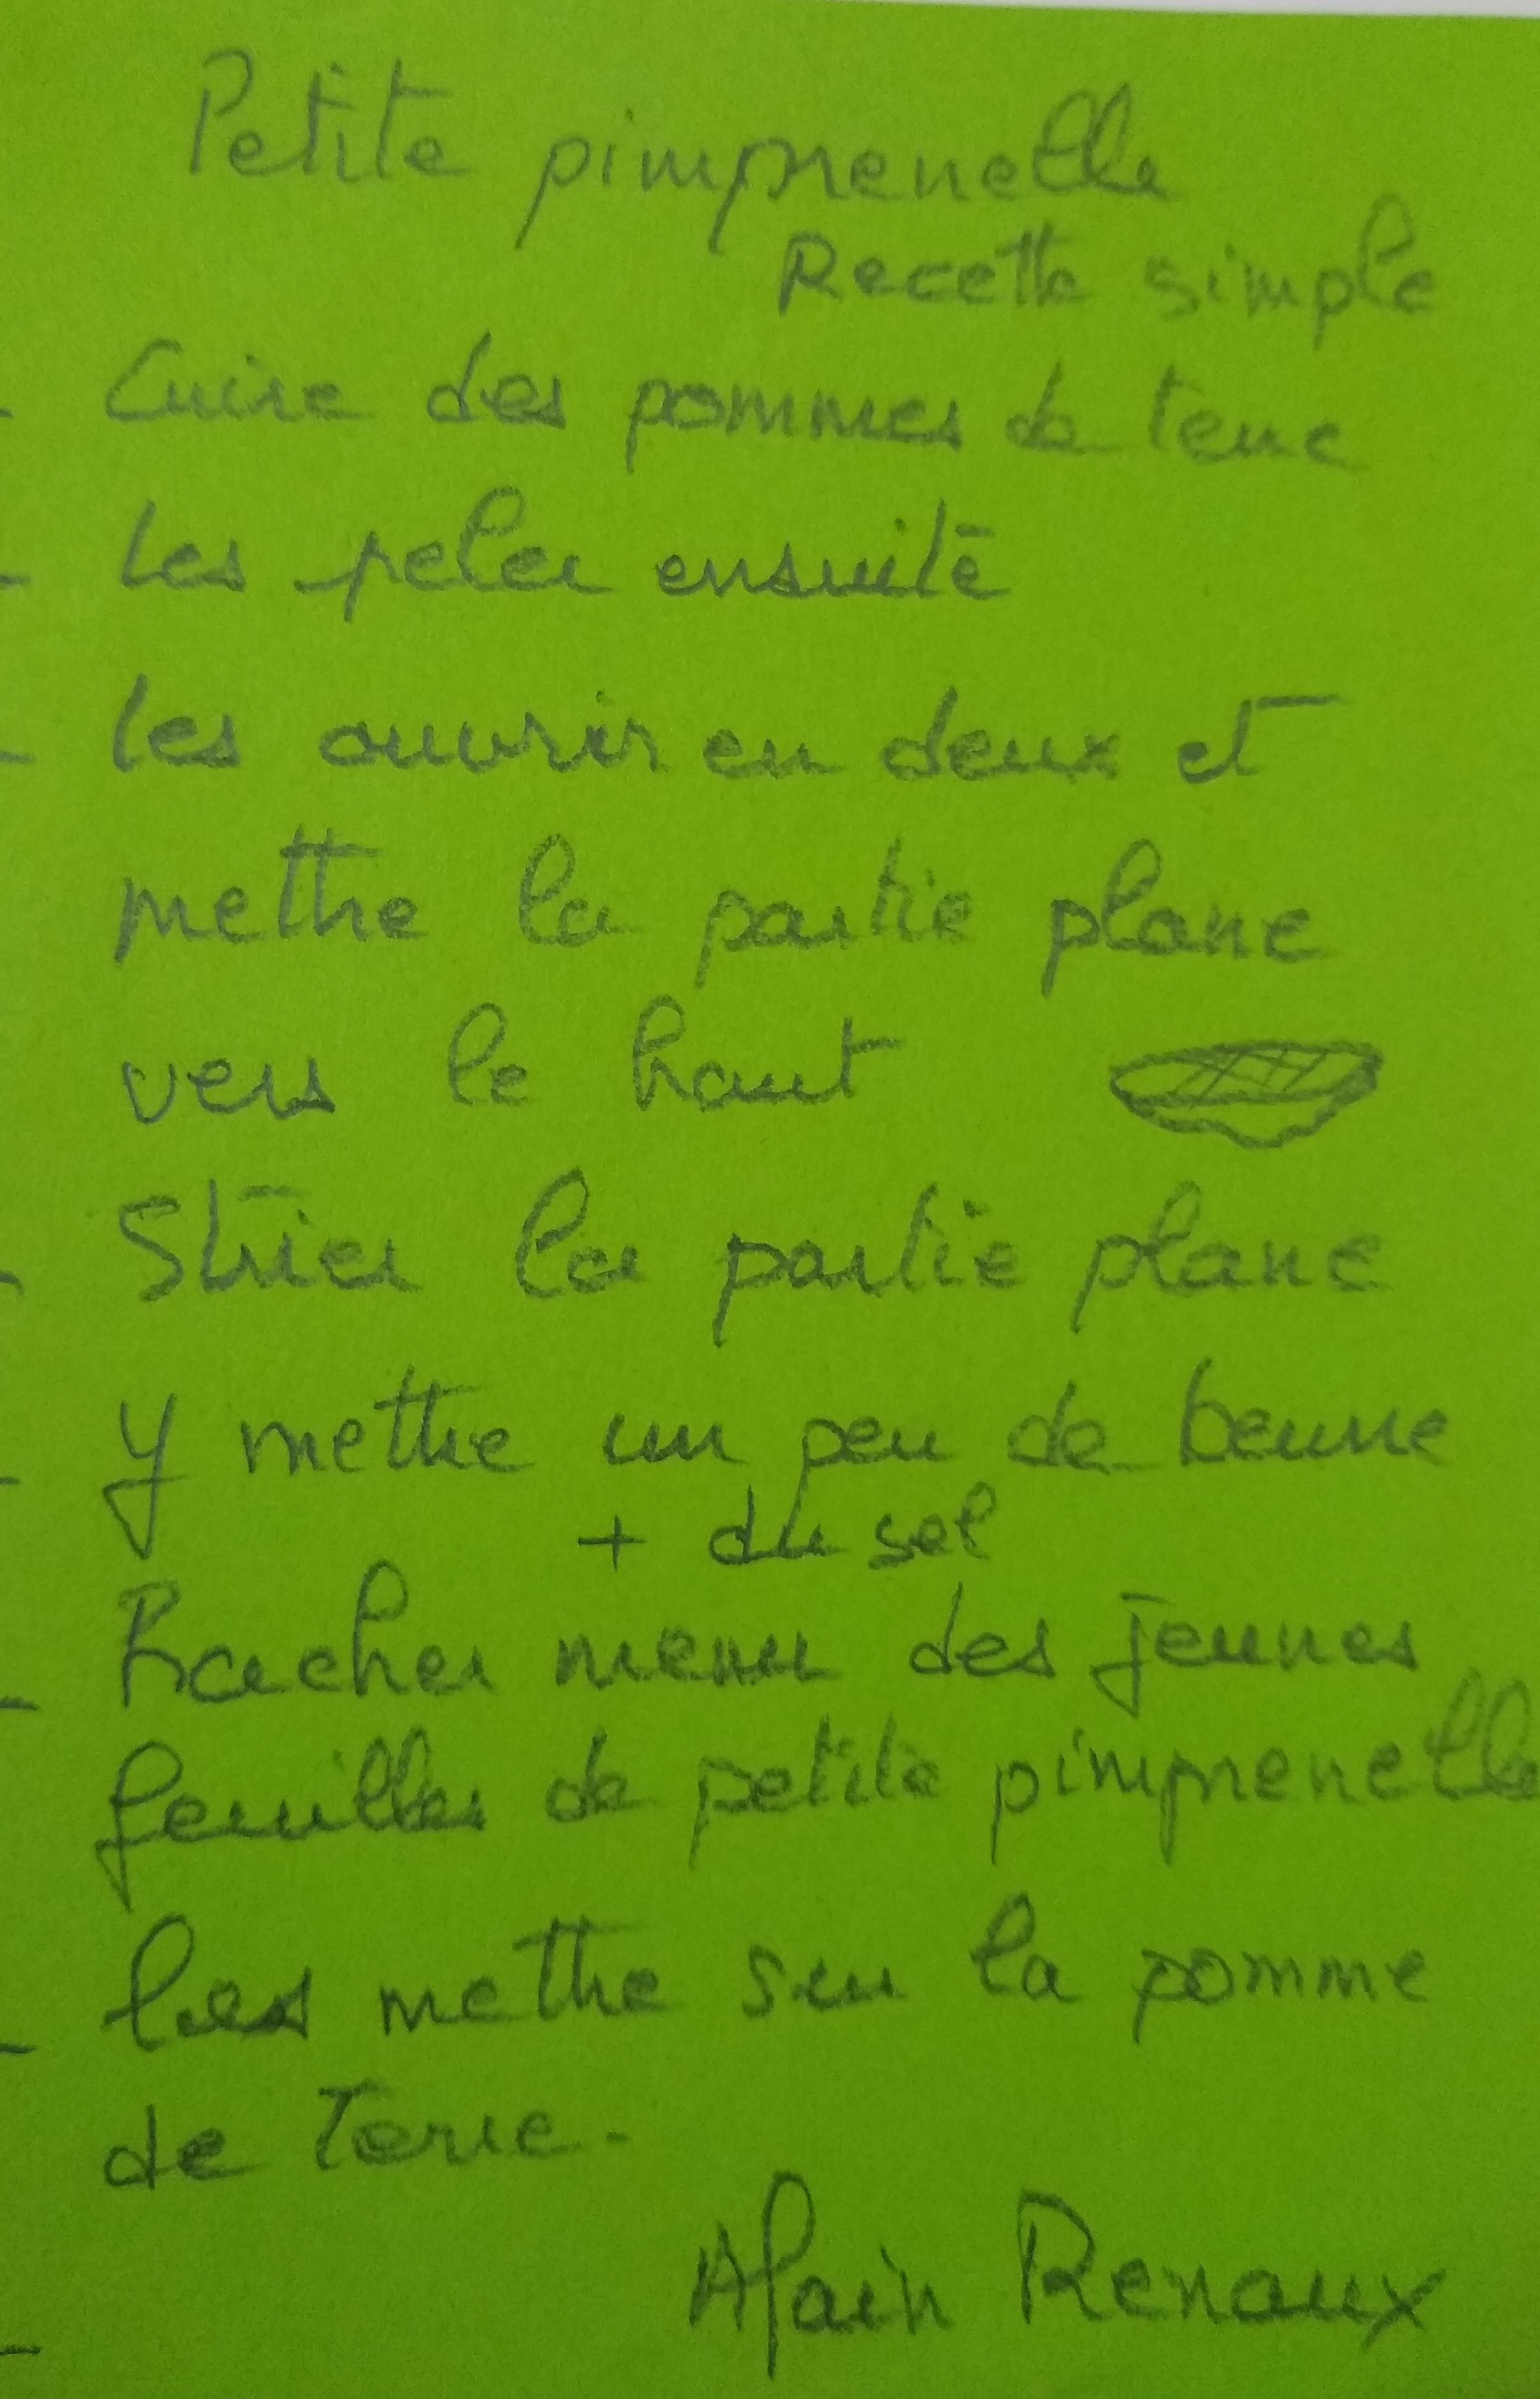 Petite pimprenelle
Recette simple
- Cuire des pommes de terre
- Les peler ensuite
- Les ouvrir en deux et
mettre la partie plane
vers le haut
- Strier la partie plane
- Y mettre un peu de beurre
+ du sel
- Hacher menu des jeunes
feuilles de petite pimprenelle
- les mettre sur la pomme
de Terre.
Alain Renaux
-